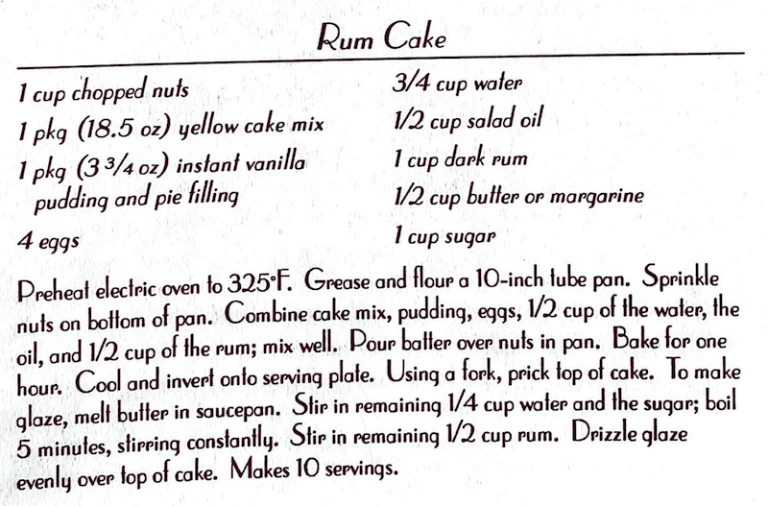 Rum Cake
1 cup chopped nuts
1 pkg (18.5 oz) yellow cake mix
1 pkg (3 3/4 oz) instant vanilla
pudding and pie filling
4 eggs
3/4 cup water
1/2 cup salad oil
1 cup dark rum
1/2 cup butter or margarine
1 cup sugar
Preheat electric oven to 325°F. Grease and flour a 10-inch tube pan. Sprinkle
nuts on bottom of pan. Combine cake mix, pudding, eggs, 1/2 cup of the water, the
oil, and 1/2 cup of the rum; mix well. Pour batter over nuts in pan. Bake for one
hour. Cool and invert onto serving plate. Using a fork, prick top of cake. To make
glaze, melt butter in saucepan. Stir in remaining 1/4 cup water and the sugar; boil
5 minutes, stirring constantly. Stir in remaining 1/2 cup rum. Drizzle glaze
evenly over top of cake. Makes 10 servings.